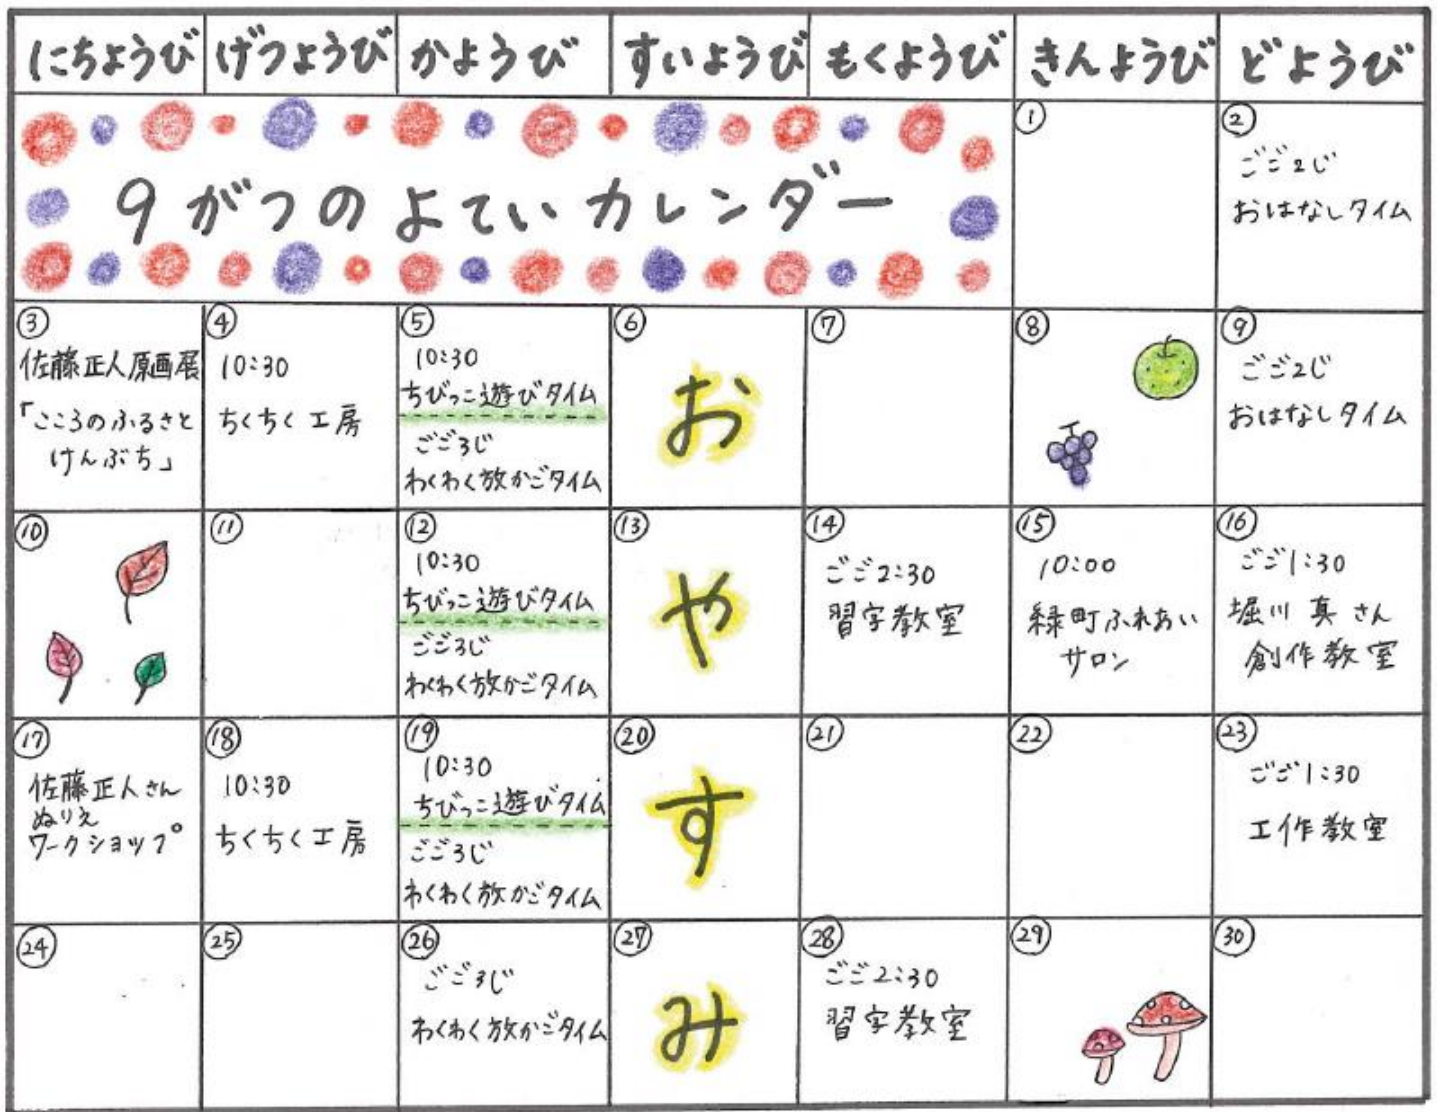 にちようび げつようび かようび すいようび もくようび きんようび どようび
9がつのよていカレンダー
①
②
ごご2じ
おはなしタイム
③
佐藤正人原画展
「こころのふるさと
けんぶち」
④
10:30
ちくちく工房
⑤
10:30
ちびっこ遊びタイム
ごご3じ
わくわく放かごタイム
⑥
お
⑦
⑧
⑨
ごご2じ
おはなしタイム
⑩
⑪
⑫
10:30
ちびっこ遊びタイム
ごご3じ
わくわく放かごタイム
⑬
や
⑭
ごご2:30
習字教室
⑮
10:00
緑町ふれあい
サロン
⑯
ごご1:30
堀川 真 さん
創作教室
⑰
佐藤正人さん
ぬりえ
ワークショップ
⑱
10:30
ちくちく工房
⑲
10:30
ちびっこ遊びタイム
ごご3じ
わくわく放かごタイム
⑳
す
㉑
㉒
㉓
ごご1:30
工作教室
㉔
㉕
㉖
ごご3じ
わくわく放かごタイム
㉗
み
㉘
ごご2:30
習字教室
㉙
㉚